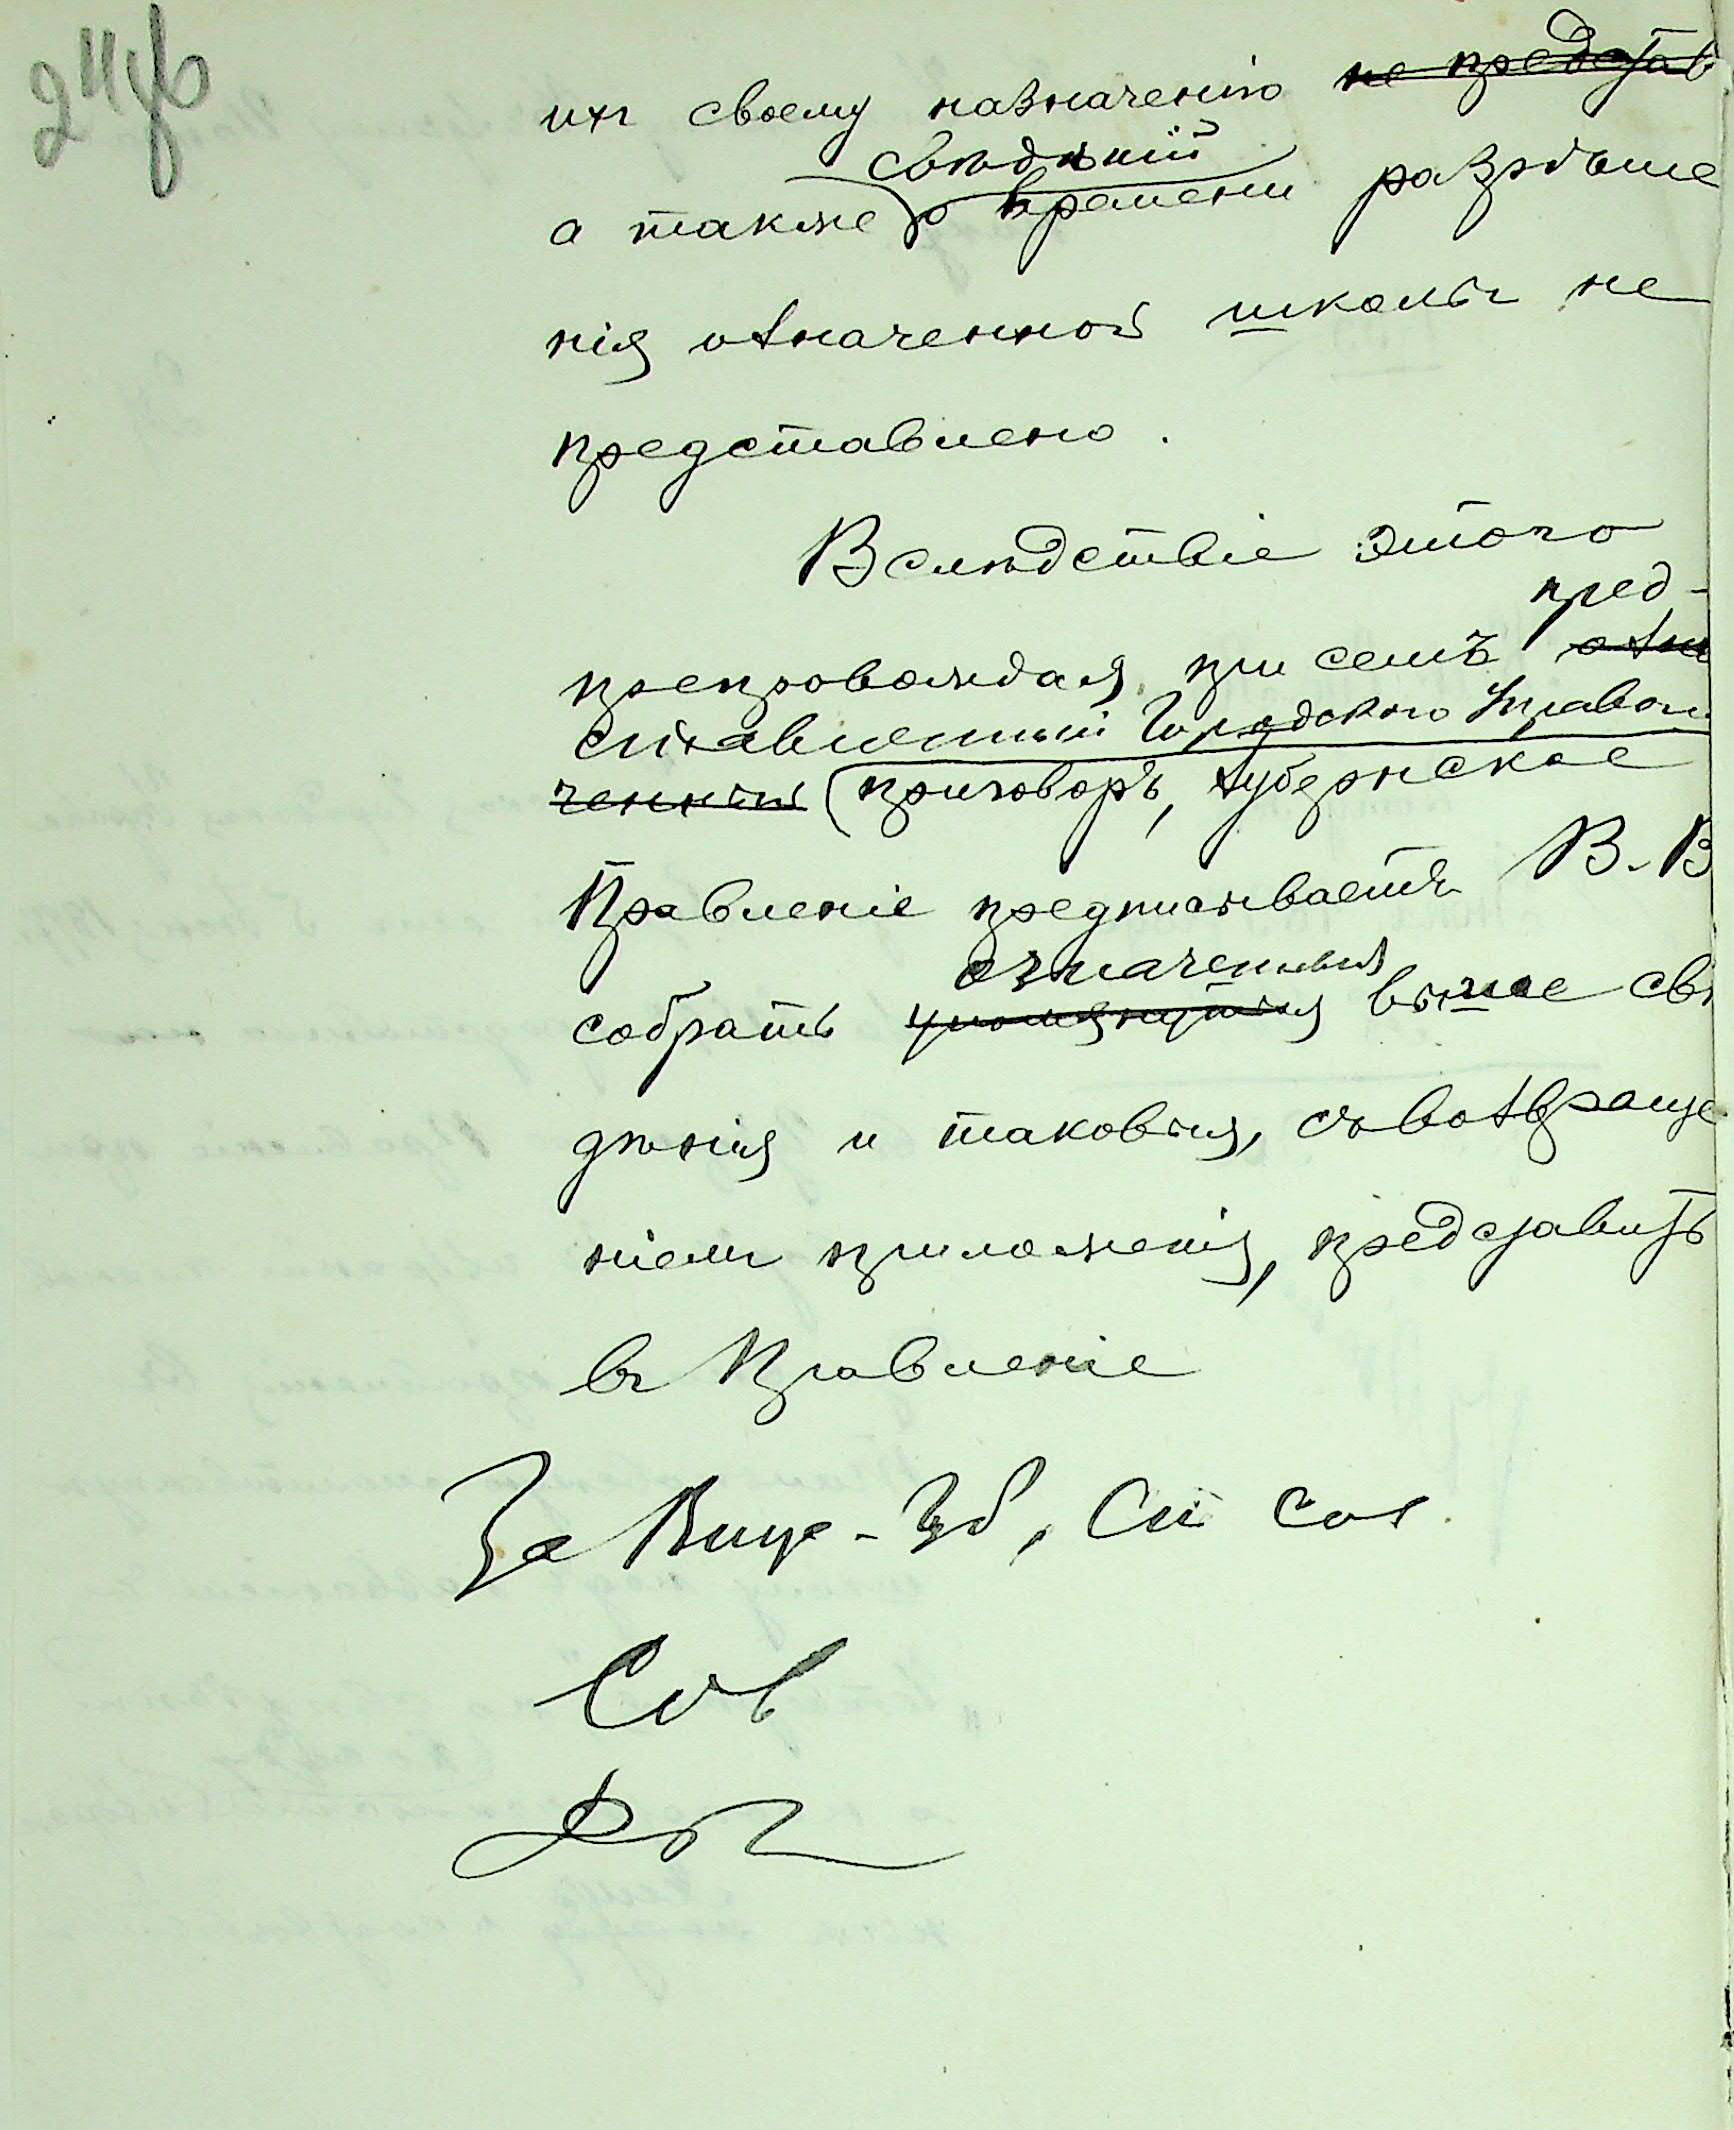 ихъ своему назначенію не представ
свѣдѣній
а также о времени разрѣше
нія означенной школы не
представлено.
Вслѣдствіе этого
пред-
препровождая при семъ озна
ставленный Городскою Управою
ченный приговоръ, Губернское
Правленіе предписываетъ В. В
собрать
означенныя
упомянутыя выше свѣ
дѣнія и таковыя, съ возвраще
ніемъ приложенія, представить
въ Правленіе
За Вице-Губ, Ст Сов.
Сов